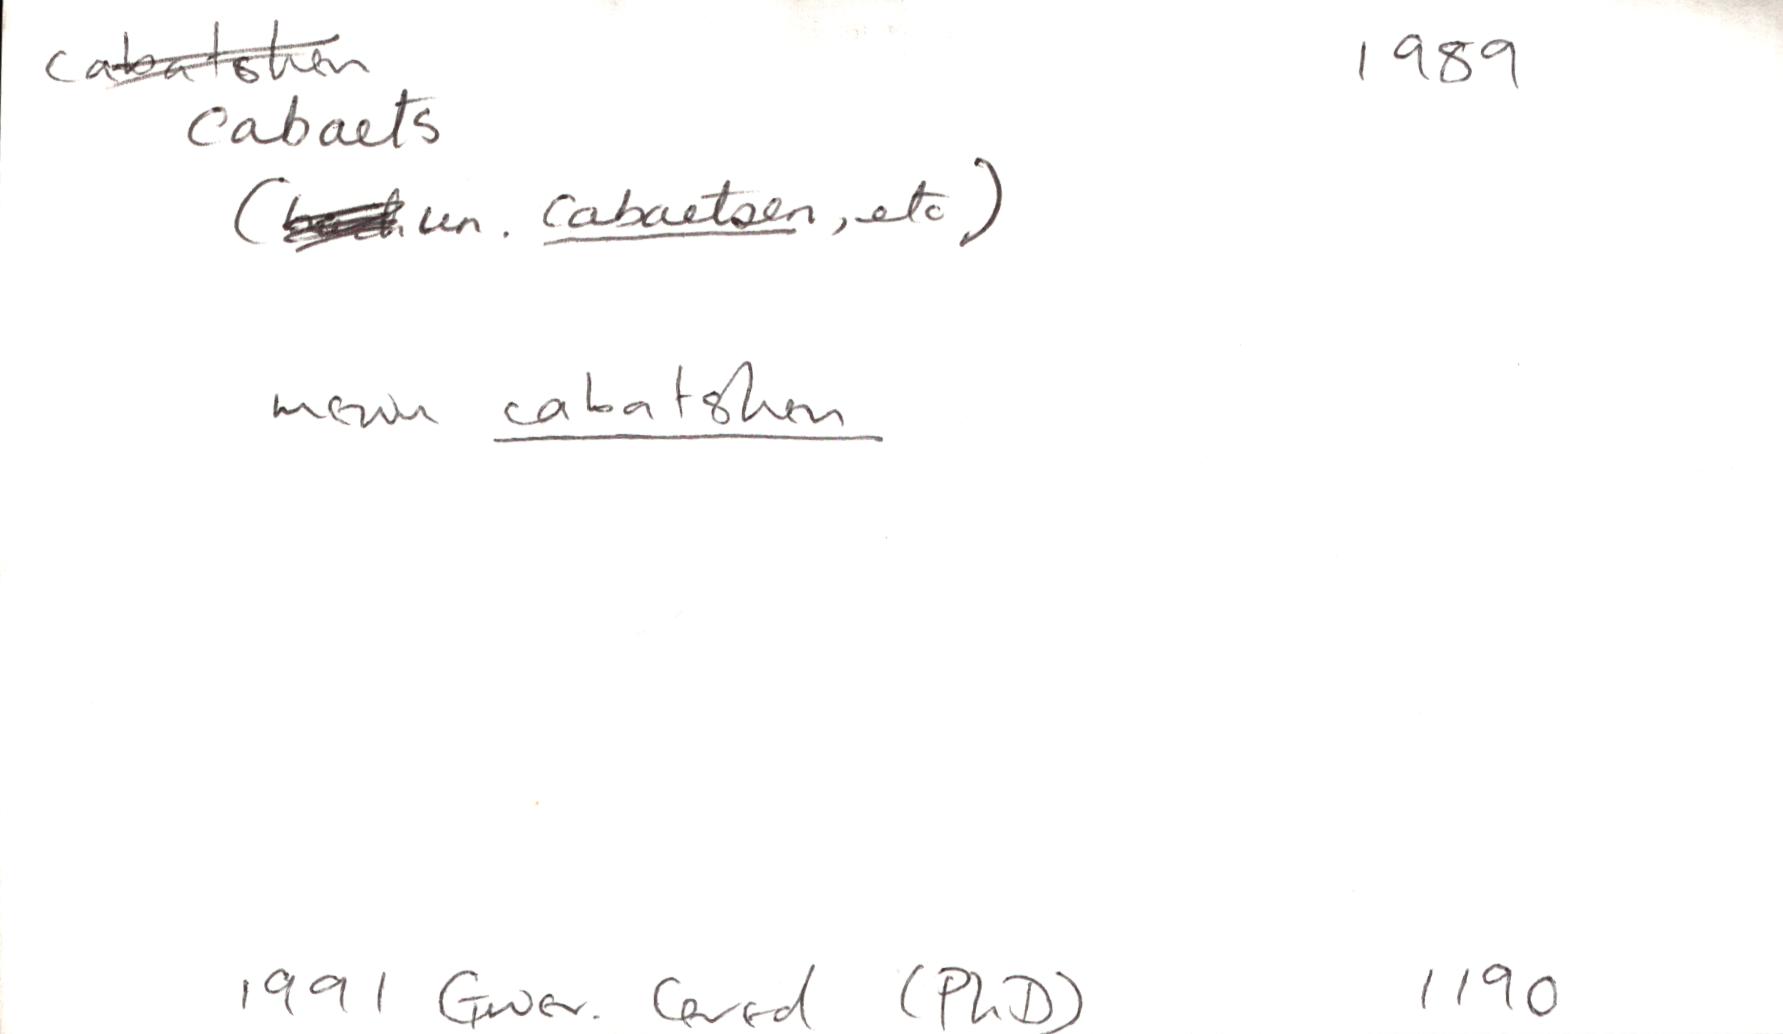 cabatshen 1989
cabaets
(un. cabaetsen, etc)
cabatshen
1991 Gwer. Cered (PhD) 1190